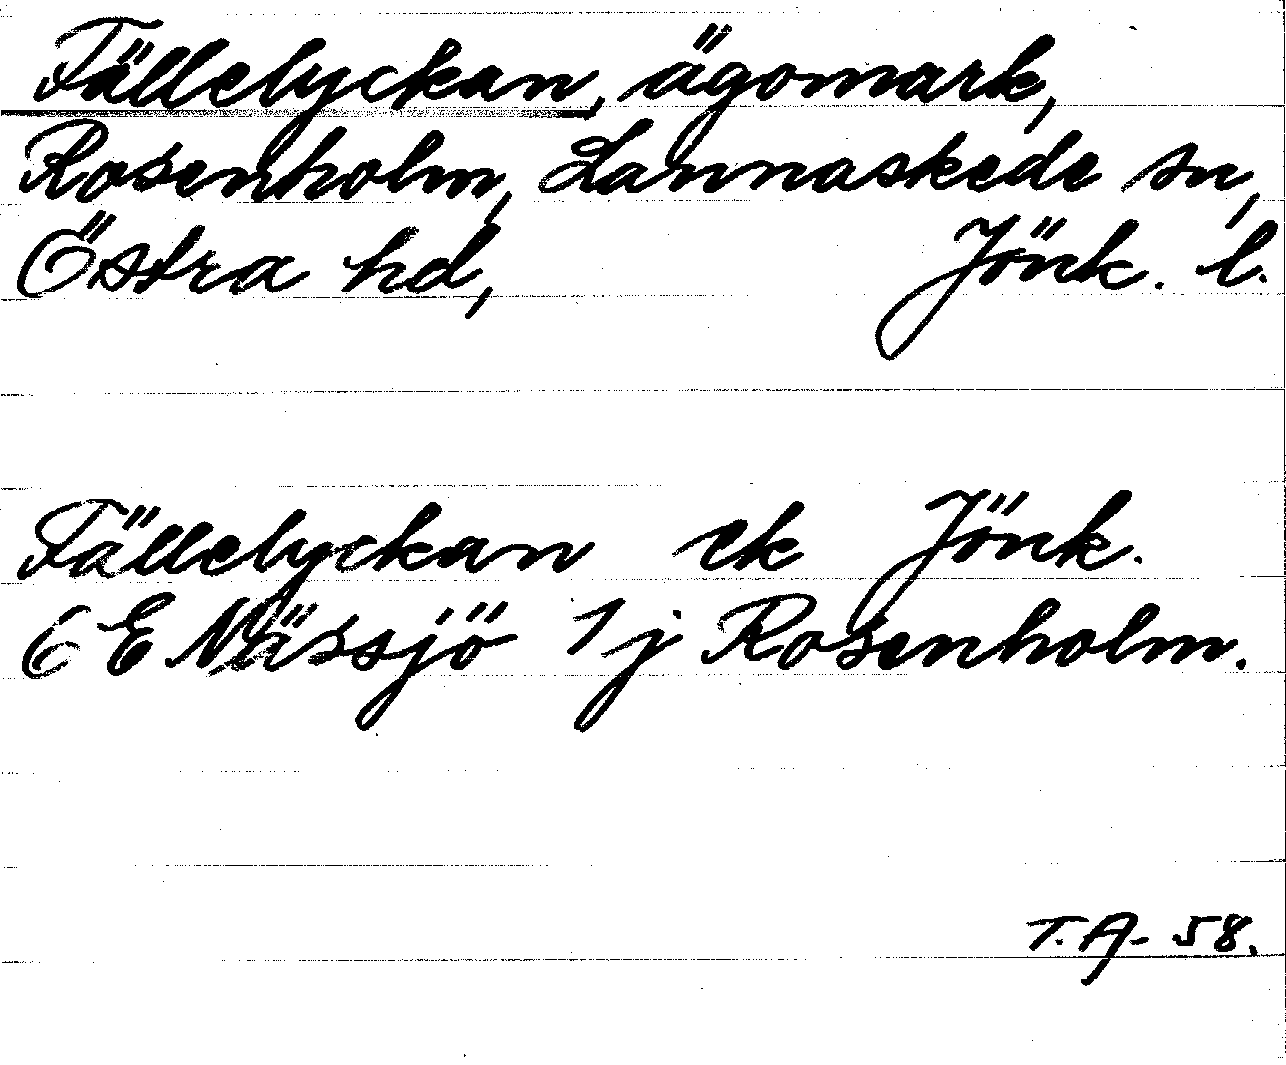 Fällelyckan, ägomark,
Rosenholm, Lannaskede sn,
Östra hd, Jönk. l.
Fällelyckan ek Jönk.
6E Nässjö 1j Rosenholm.
T.A- 58.